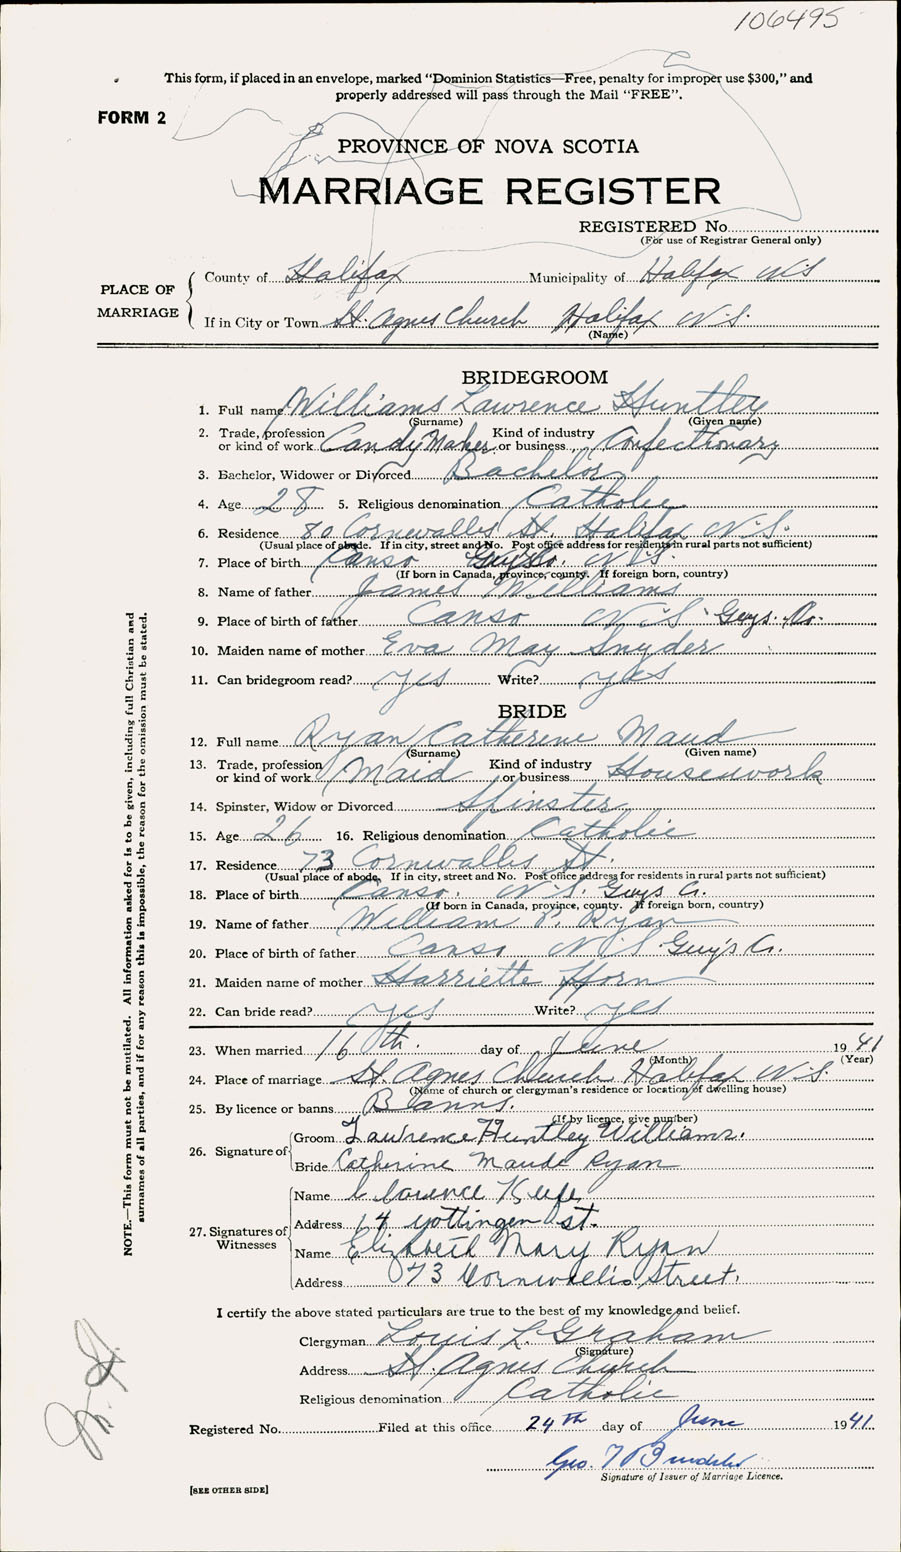 106495
This form, if placed in an envelope, marked "Dominion Statistics—Free, penalty for improper use $300," and
properly addressed will pass through the Mail "FREE".
FORM 2
PROVINCE OF NOVA SCOTIA
MARRIAGE REGISTER
REGISTERED No.
(For use of Registrar General only)
PLACE OF MARRIAGE
County of Halifax Municipality of Halifax N.S
If in City or Town St. Agnes Church Halifax N.S.
(Name)
BRIDEGROOM
1. Full name Williams Lawrence Huntley
(Surname) (Given name)
2. Trade, profession or kind of work Candy Maker Kind of industry or business Confectionary
3. Bachelor, Widower or Divorced Bachelor
4. Age 28 5. Religious denomination Catholic
6. Residence 80 Cornwallis St. Halifax N.S.
(Usual place of abode. If in city, street and No. Post office address for residents in rural parts not sufficient)
7. Place of birth Canso Guys Co. N.S.
(If born in Canada, province, county. If foreign born, country)
8. Name of father James Williams
9. Place of birth of father Canso N.S Guys. Co.
10. Maiden name of mother Eva May Snyder
11. Can bridegroom read? yes Write? yes
BRIDE
12. Full name Ryan Catherine Maud
(Surname) (Given name)
13. Trade, profession or kind of work Maid Kind of industry or business Housework
14. Spinster, Widow or Divorced Spinster
15. Age 26 16. Religious denomination Catholic
17. Residence 73 Cornwallis St.
(Usual place of abode. If in city, street and No. Post office address for residents in rural parts not sufficient)
18. Place of birth Canso. N.S. Guys Co.
(If born in Canada, province, county. If foreign born, country)
19. Name of father William P. Ryan
20. Place of birth of father Canso N S Guy's Co.
21. Maiden name of mother Harriette Horn
22. Can bride read? yes Write? yes
23. When married 16th. day of June 1941
(Month) (Year)
24. Place of marriage St. Agnes Church Halifax N.S.
(Name of church or clergyman's residence or location of dwelling house)
25. By licence or banns Banns.
(If by licence, give number)
26. Signature of
Groom Lawrence Huntley Williams.
Bride Catherine Maude Ryan
27. Signatures of Witnesses
Name Clarence Keefe
Address 14 gottingen st.
Name Elizabeth Mary Ryan
Address 73 Cornwallis Street.
I certify the above stated particulars are true to the best of my knowledge and belief.
Clergyman Louis L. Graham
(Signature)
Address St. Agnes Church
Religious denomination Catholic
Registered No. Filed at this office 24th day of June 1941
Geo.
Signature of Issuer of Marriage Licence.
[SEE OTHER SIDE]
NOTE.—This form must not be mutilated. All information asked for is to be given, including full Christian and
surnames of all parties, and if for any reason this is impossible, the reason for the omission must be stated.